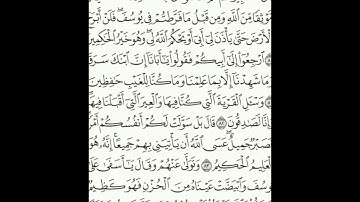 مَّوْثِقًا مِّنَ ٱللَّهِ وَمِن قَبْلُ مَا فَرَّطتُمْ فِى يُوسُفَ فَلَنْ أَبْرَ
لْأَرْضَ حَتَّىٰ يَأْذَنَ لِىٓ أَبِىٓ أَوْ يَحْكُمَ ٱللَّهُ لِى وَهُوَ خَيْرُ ٱلْحَٰكِمِين
ٱرْجِعُوٓا۟ إِلَىٰٓ أَبِيكُمْ فَقُولُوا۟ يَٰٓأَبَانَآ إِنَّ ٱبْنَكَ سَرَقَ
مَا شَهِدْنَآ إِلَّا بِمَا عَلِمْنَا وَمَا كُنَّا لِلْغَيْبِ حَٰفِظِينَ
وَسْـَٔلِ ٱلْقَرْيَةَ ٱلَّتِى كُنَّا فِيهَا وَٱلْعِيرَ ٱلَّتِىٓ أَقْبَلْنَا فِيهَا
إِنَّا لَصَٰدِقُونَ ٨٢ قَالَ بَلْ سَوَّلَتْ لَكُمْ أَنفُسُكُمْ أَمْرً
صَبْرٌ جَمِيلٌ عَسَى ٱللَّهُ أَن يَأْتِيَنِى بِهِمْ جَمِيعًا إِنَّهُۥ هُو
لْعَلِيمُ ٱلْحَكِيمُ ٨٣ وَتَوَلَّىٰ عَنْهُمْ وَقَالَ يَٰٓأَسَفَىٰ عَلَى
وسُفَ وَٱبْيَضَّتْ عَيْنَاهُ مِنَ ٱلْحُزْنِ فَهُوَ كَظِيمٌ